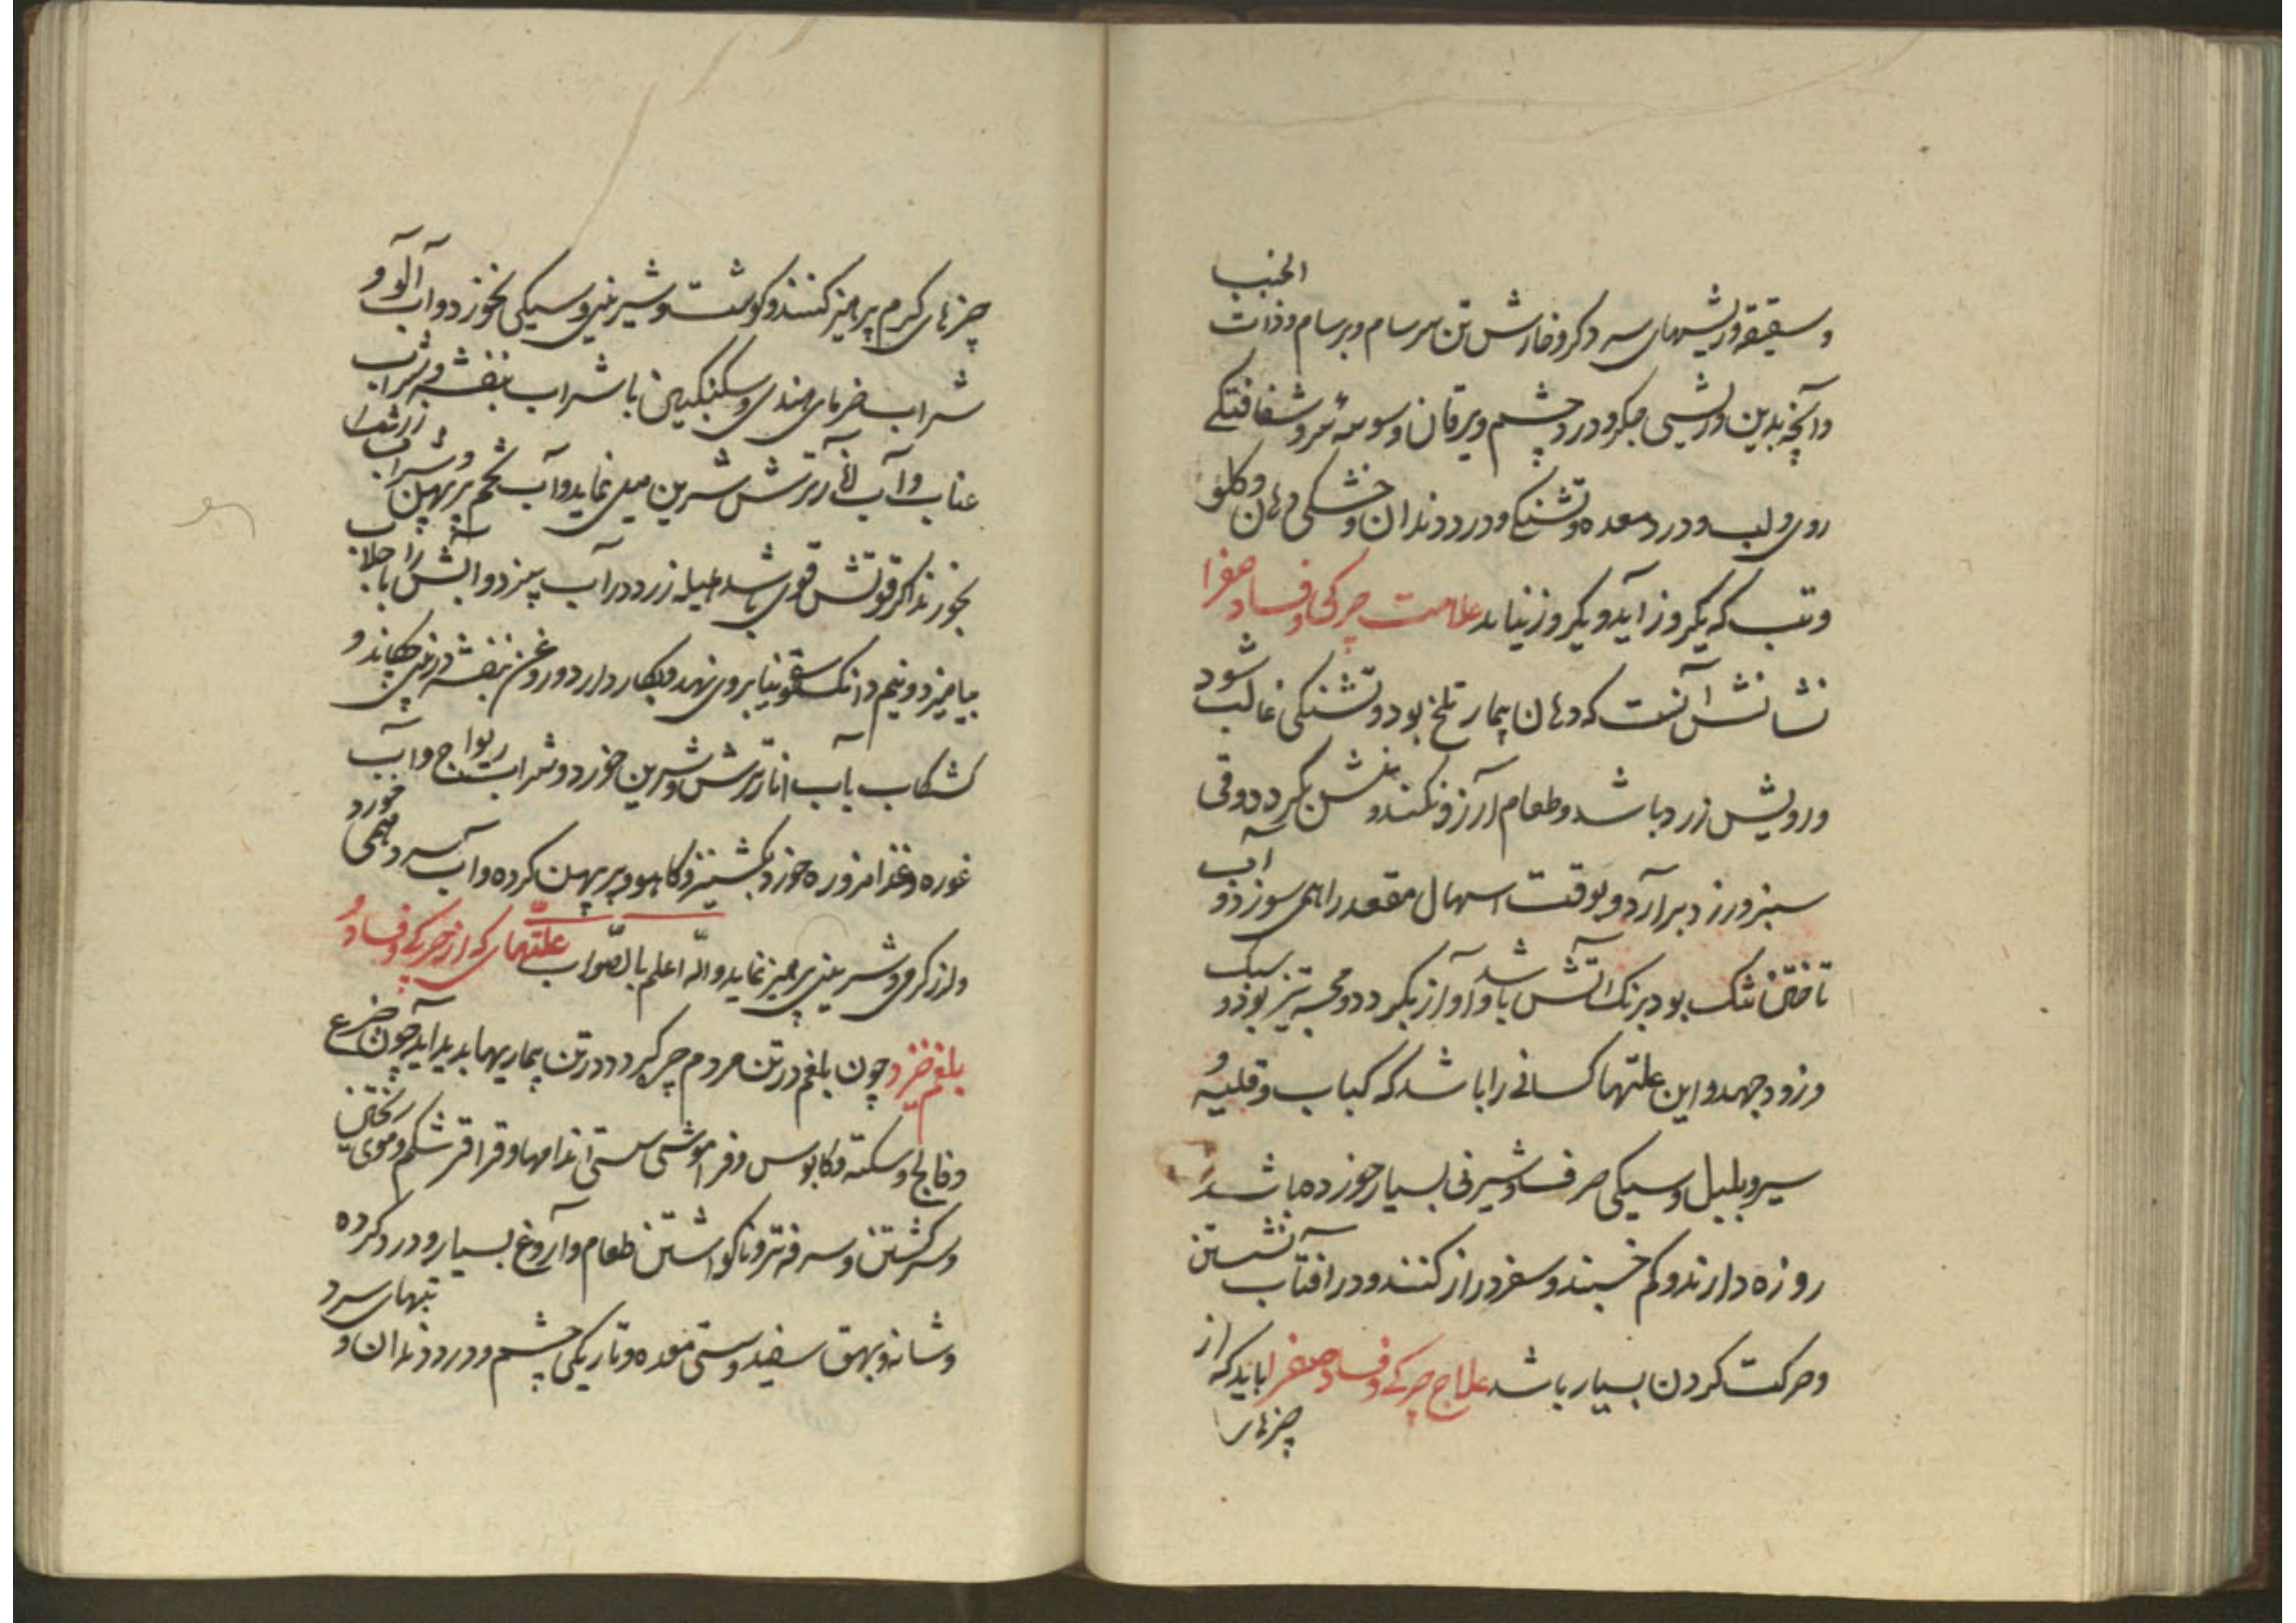 وسقیقه وریشهای سه دکر و خارش تن سرسام و برسام و ذات الجنب
وآنچه بدین وریشی جکر و درد چشم و یرقان وسوسه سر و شفافتکی
روی ولب و درد معده و تشنکی و درد دندان و خشکی دهان و کلو
وتب که یکروز آید و یکروز نیاید علامت چرکی و فساد صفرا
نشانش آنست که دهان بیمار تلخ بود و تشنکی غالب شود
ورویش زرد باشد و طعام آرزو نکند و منش بکردد و قی
سبز و زرد برآرد و بوقت اسهال مقعد را همی سوزد و آب
تاختن تنک بود برنک آتش باشد و آواز بکیرد و مجسه تیز بود و سبک
وزود جهد و این علتها کسانی را باشد که کباب و قلیه و
سیر و بلبل و سیکی صرف و شیرنی بسیار خورده باشد
روزه دارند و کم خسبند و سفر دراز کنند و در آفتاب نشستن
وحرکت کردن بسیار باشد علاج چرکی و فساد صفرا باید که از
چیزهای
چیزهای کرم پرهیز کنند و کوشت و شیرینی و سیکی نخورد و آب آلو و
شراب خرمای هندی و سکنکبین با شراب بنفشه و شراب
عناب و آب انار ترش شیرین میل نماید و آب تخم پرپهن و شراب
بخورند اکر قوتش قوی باشد هلیله زرد در آب پزد و آبش را با جلاب
بیامیزد و نیم دانک سقمونیا بروی نهد و بکار دارد و روغن بنفشه در بینی چکاند و
کشکاب بآب انار ترش و شیرین خورد و شراب ریواج و آب
غوره و غذا مزوره خورد بکشنیز و کاهو و پرپهن کرده و آب سرد همی خورد
واز کرمی و شیرینی پرهیز نماید والله اعلم بالصواب علتهای که از چرکی و فساد و
بلغم خیزد چون بلغم در تن مردم چرکرد در تن بیماریها پدید آید چون صرع
وفالج و سکته و کابوس و فراموشی سستی اندامها و قراقر شکم و موی ریختن
وسرکشتن و سرفه تر و ناکواشتن طعام و آروغ بسیار و درد کرده
وشانه و بهق سفید و سستی معده و تاریکی چشم و درد دندان و تبهای سرد